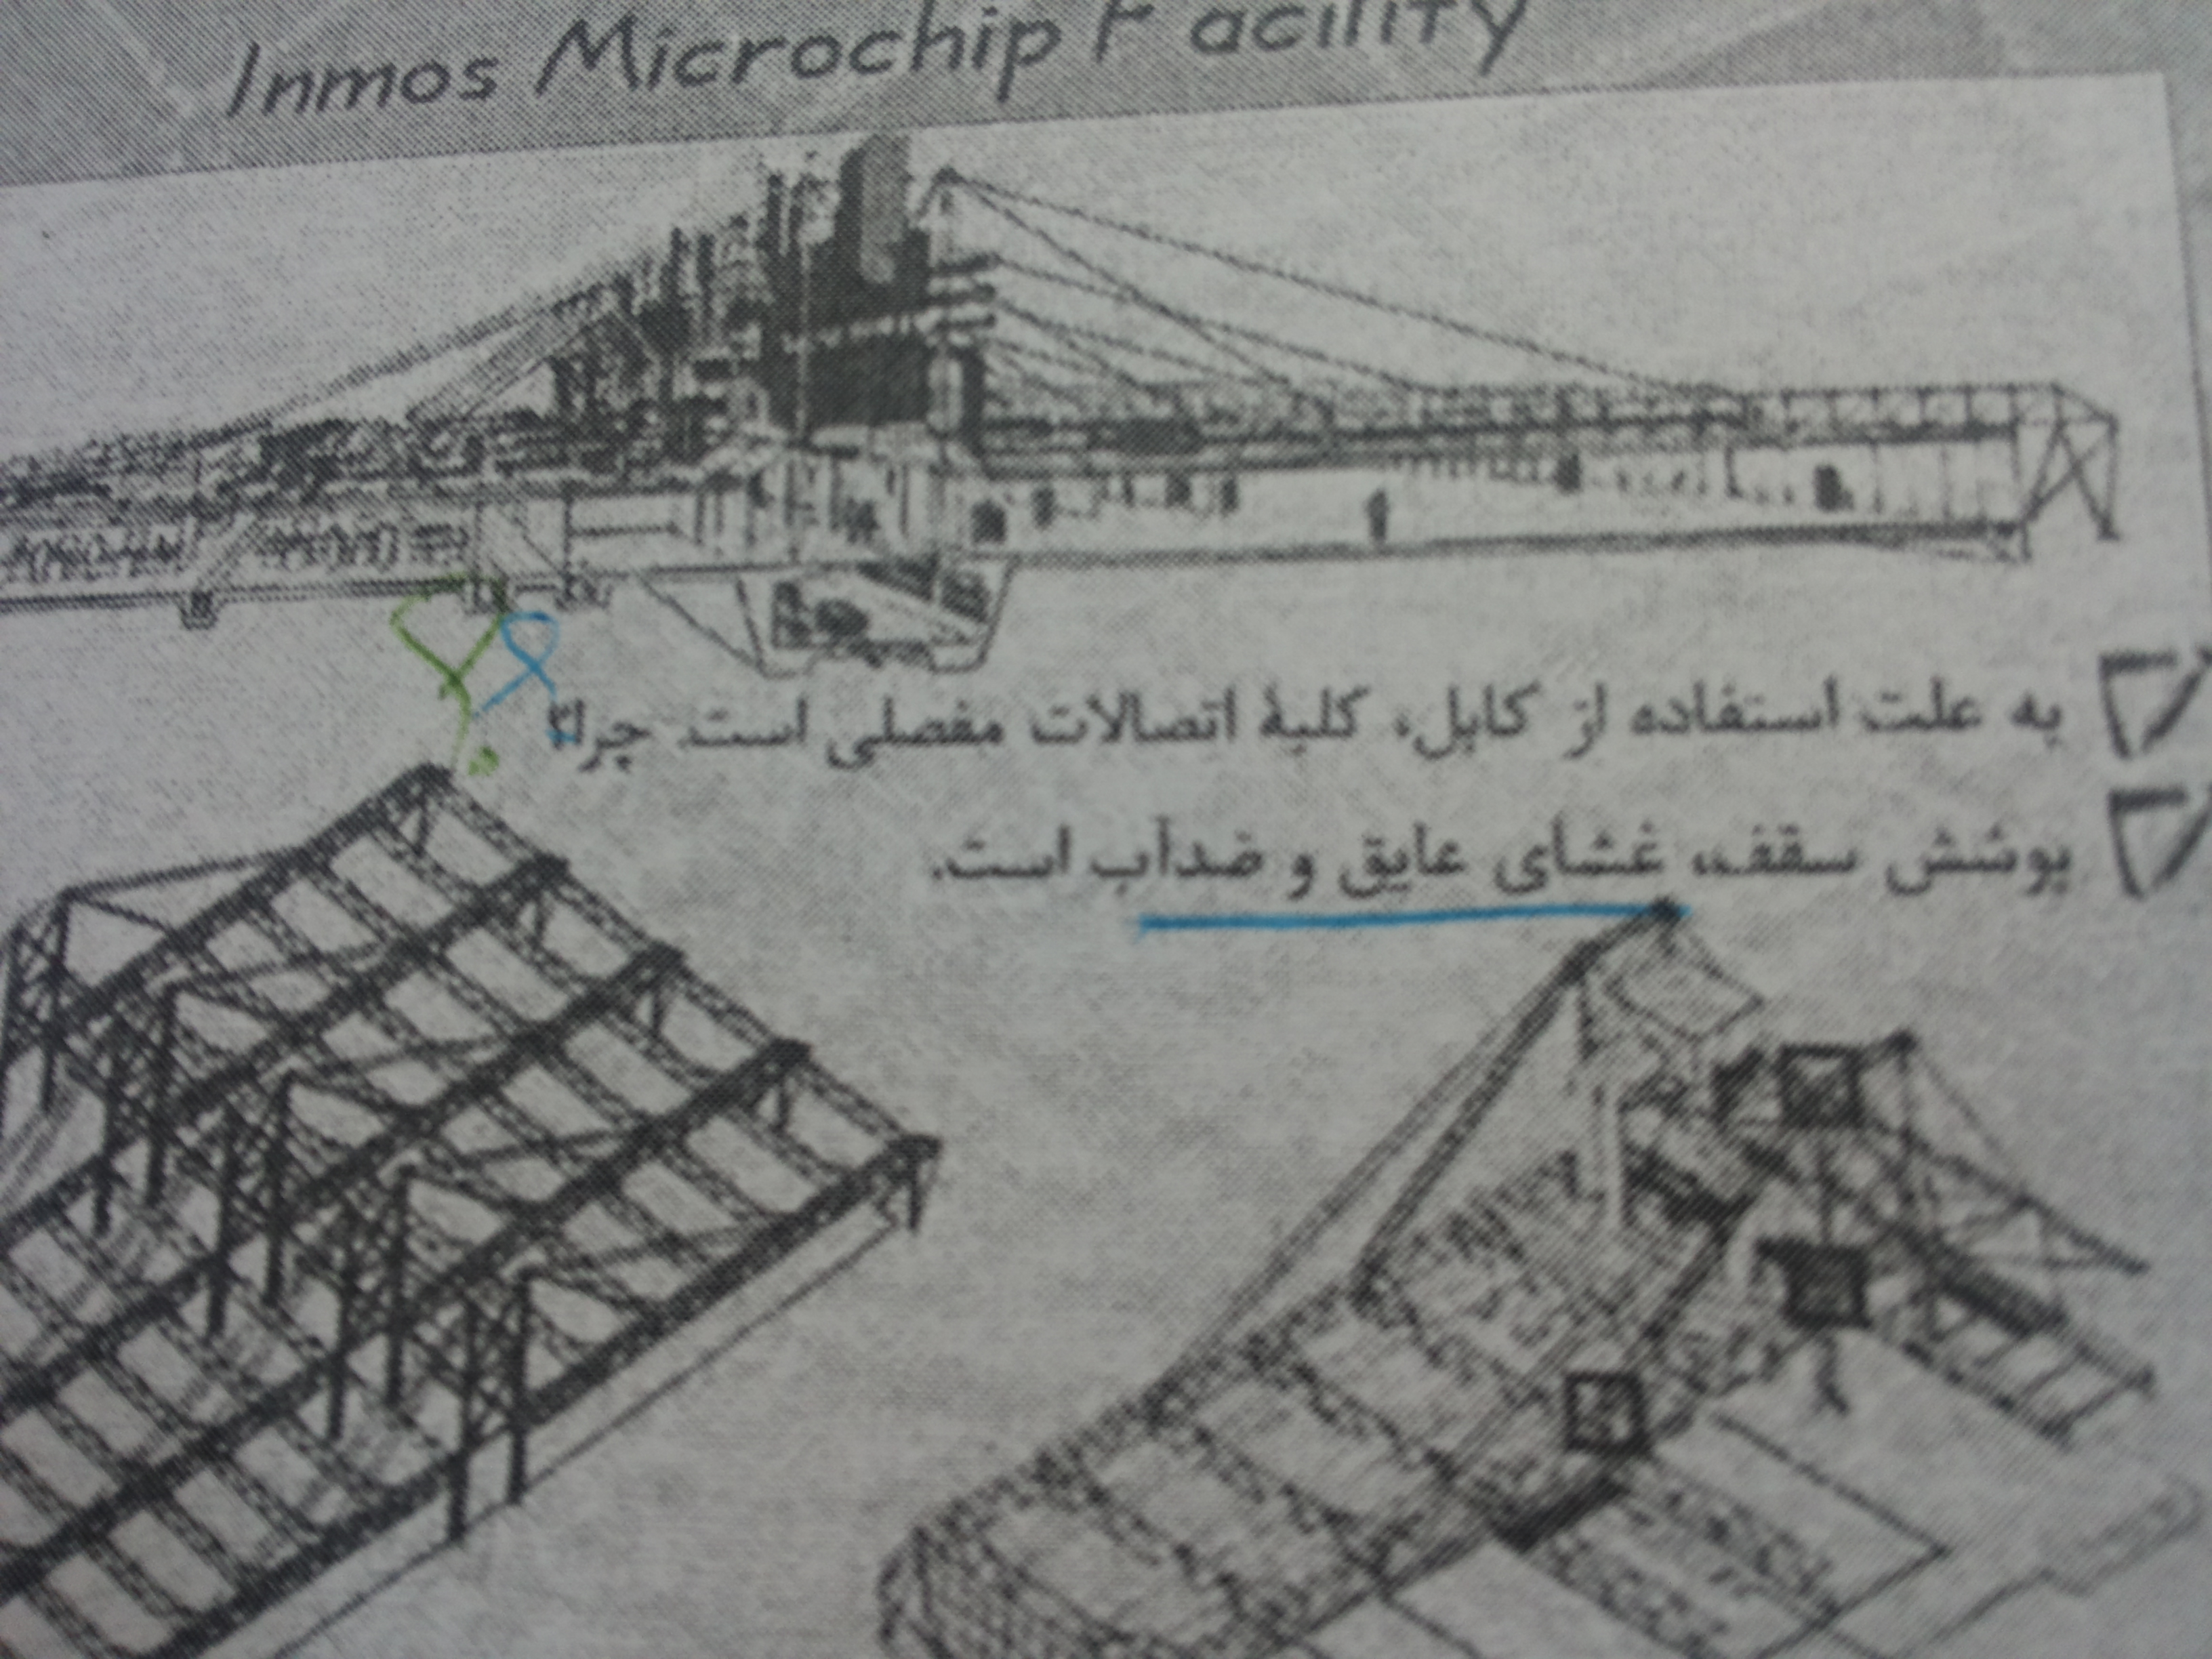 Inmos Microchip Facility
به علت استفاده از کابل، کلیهٔ اتصالات مفصلی است. چرا؟
پوشش سقف، غشای عایق و ضدآب است.